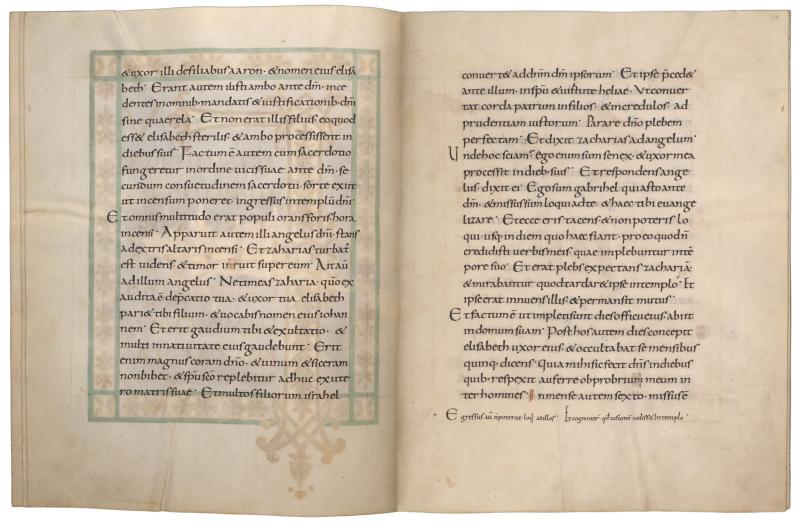 &uxor illi defiliabus aaron · &nomen eius elisa
beth · Erant autem iusti ambo ante dm̄ · ince
dentes inomnib; mandatis &iustificationib; dn̄i
sine quaerela · Et non erat illis filius, eo quod
ess& elisabeth sterilis, & ambo processissent in
diebus suis · Factum ē autem cum sacerdotio
fungeretur inordine uicis suae ante dm̄ · se
cundum consuetudinem sacerdotii · sorte exiit
ut incensum poneret · ingressus intemplū dn̄i ·
Et omnis multitudo erat populi orans foris hora
incensi · Apparuit autem illi angelus dn̄i · stans
adextris altaris incensi · Et zaharias turbat;
est uidens, & timor inruit super eum · Ait aū
ad illum angelus · Ne timeas zaharia · quō ex
audita ē dep̄catio tua · & uxor tua elisabeth
pari& tibi filium · & uocabis nomen eius iohan
nem · Et erit gaudium tibi & exultatio · &
multi innatiuitate eius gaudebunt · Erit
enim magnus coram dn̄o · & uinum & siceram
non bib& · & sp̄u sc̄o replebitur adhuc ex ute
ro matris suae · Et multos filiorum israhel
conuert& ad dn̄m dm̄ ipsorum · Et ipse p̄ced&
ante illum · insp̄u & uirtute heliae · Ut conuer
tat corda patrum infilios · & incredulos ad
prudentiam iustorum · Parare dn̄o plebem
perfectam · Et dixit zacharias ad angelum ·
Unde hoc sciam? ego enim sum senex · & uxor mea
processit indieb; suis · Et respondens ange
lus · dixit ei · Ego sum gabrihel qui asto ante
dm̄ · & missus sum loqui ad te · & haec tibi euange
lizare · Et ecce eris tacens, & non poteris lo
qui · usq; in diem quo haec fiant · pro eo quod n̄
credidisti uerbis meis · quae implebuntur intē
pore suo · Et erat plebs expectans zachariā
& mirabantur quod tardar& ipse intemplo · Et
ipse erat innuens illis, & permansit mutus ·
Et factum ē ut impleti sunt dies officii eius, abiit
in domum suam · Post hos autem dies concepit
elisabeth uxor eius · & occultabat se mensibus
quinq; dicens · Quia mihi sic fecit dn̄s indiebus
quib; respexit auferre obprobrium meum in
ter homines · In mense autem sexto · missus ē
Egressus aū n̄ poterat loq; ad illos · Et cognouer̄ qd̄ uisionē uidiss& in templo ·